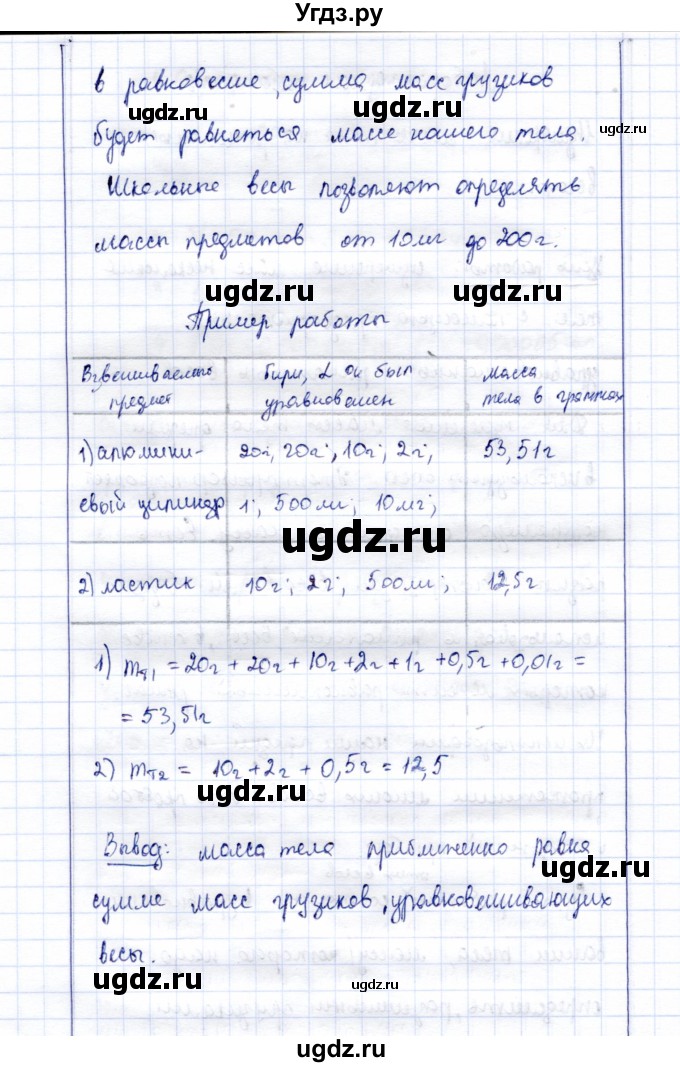 Угдз.ру
в равновесие, сумма масс грузиков
ugdz.ru ugdz.ru ugdz.ru
будет равняться массе нашего тела.
Школьные весы позволяют определять
массы предметов от 10мг до 200г.
ugdz.ru ugdz.ru
Пример работы
Взвешиваемый предмет | Гири, с ои был уравновешен | масса тела в граммах
1) алюмини- | 20г, 20г; 10г; 2г; | 53,51г
евый цилиндр | 1г; 500мг; 10мг;
ugdz.ru
2) ластик | 10г; 2г; 500мг; | 12,5г
1) mт1 = 20г + 20г + 10г + 2г + 1г + 0,5г + 0,01г =
= 53,51г
2) mт2 = 10г + 2г + 0,5г = 12,5
ugdz.ru
Вывод: масса тела приближенно равна
ugdz.ru
сумме масс грузиков, уравновешивающих
весы.
ugdz.ru ugdz.ru
ugdz.ru